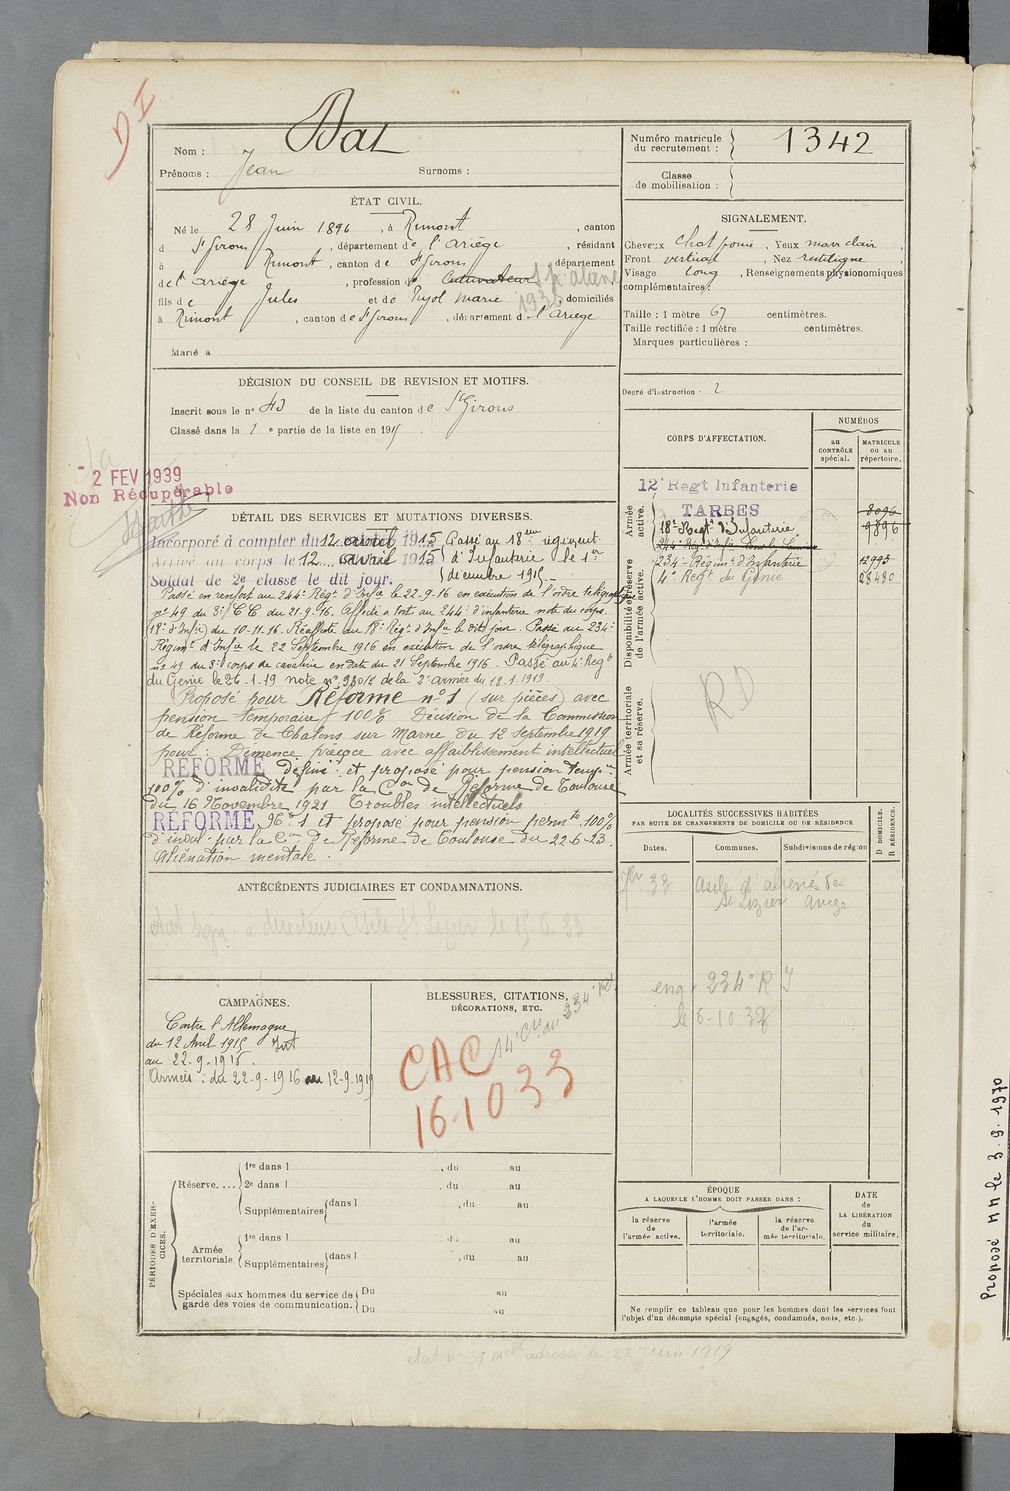 D I
Nom : Bat
Prénoms : Jean Surnoms :
Numéro matricule
du recrutement : 1342
Classe
de mobilisation :
ÉTAT CIVIL.
Né le 28 Juin 1896, à Rimont, canton
d St Girons, département de l'Ariège, résidant
à Rimont, canton de St Girons, département
de l'Ariège, profession de Cultivateur
1936
fils de Jules et de Pujol Marie domiciliés
à Rimont, canton de St Girons, département d l'Ariège
Marié à
SIGNALEMENT.
Cheveux chat foncé. Yeux marr clair,
Front vertical, Nez rectiligne,
Visage long, Renseignements physionomiques
complémentaires :
Taille : 1 mètre 67 centimètres.
Taille rectifiée : 1 mètre centimètres.
Marques particulières :
Degré d'instruction : 2
DÉCISION DU CONSEIL DE REVISION ET MOTIFS.
Inscrit sous le n° 43 de la liste du canton de St Girons
Classé dans la 1 e partie de la liste en 1915.
2 FEV 1939
Non Récupérable
DÉTAIL DES SERVICES ET MUTATIONS DIVERSES.
Incorporé à compter du 12 avril 1915 Passé au 18ème régiment
Arrivé au corps le 12 avril 1915 d'Infanterie le 1er
Soldat de 2e classe le dit jour. décembre 1915.
Passé en renfort au 244e Régt d'Infie le 22-9-16 en exécution de l'ordre télégraphique
n° 49 du 3e C C du 21-9-16. Affecté à tort au 244e d'infanterie note du corps
18e d'Infie du 10-11-16. Réaffecté au 18e Régt d'Infie le dit jour. Passé au 234e
Régimt d'Infie le 22 Septembre 1916 en exécution de l'ordre télégraphique
n° 49 du 3e corps de cavalerie en date du 21 Septembre 1916. Passé au 4e Regt
du Génie le 26-1-19 note n° 9301/5 de la 2e armée du 18-1-1919.
Proposé pour Réforme n° 1 (sur pièces) avec
pension temporaire 100% Décision de la Commission
de Réforme de Chalons sur Marne du 12 Septembre 1919
pour : Démence précoce avec affaiblissement intellectuel
RÉFORMÉ défini et proposé pour pension temp.
100% d'invalidité par la Con de Réforme de Toulouse
du 16 Novembre 1921 Troubles intellectuels
RÉFORMÉ 1 et proposé pour pension permte 100%
d'inval. par la Con de Réforme de Toulouse du 22.6.23.
Aliénation mentale.
CORPS D'AFFECTATION.
NUMÉROS
au
CONTRÔLE
spécial.
MATRICULE
ou au
répertoire.
Armée
active.
12e Regt Infanterie
TARBES 8096
18e Régt d'Infanterie 9896
234e Régimt d'Infanterie 12993
4e Regt du Génie 28430
Disponibilité et réserve
de l'armée active.
Armée territoriale
et sa réserve.
RD
LOCALITÉS SUCCESSIVES HABITÉES
PAR SUITE DE CHANGEMENTS DE DOMICILE OU DE RÉSIDENCE
Dates.
Communes.
Subdivisions de région
D DOMICILE.
R RÉSIDENCE.
Asile d'aliénés de
St Lizier Ariège
234e R I
ANTÉCÉDENTS JUDICIAIRES ET CONDAMNATIONS.
à directeur Asile St Lizier le
CAMPAGNES.
Contre l'Allemagne
du 12 Avril 1915 Int
au 22-9-1916.
Armées : du 22-9-1916 au 12-9-1919
BLESSURES, CITATIONS,
DÉCORATIONS, ETC.
14e Cie du 234e
CAC
161033
PÉRIODES D'EXERCICES.
Réserve....
1re dans l , du au
2e dans l , du au
Supplémentaires dans l , du au
Armée
territoriale.
1re dans l , du au
Supplémentaires dans l , du au
Spéciales aux hommes du service de
garde des voies de communication.
Du au
Du au
ÉPOQUE
A LAQUELLE L'HOMME DOIT PASSER DANS :
la réserve
de
l'armée active.
l'armée
territoriale.
la réserve
de l'ar-
mée territoriale.
DATE
de
LA LIBÉRATION
du
service militaire.
Ne remplir ce tableau que pour les hommes dont les services font
l'objet d'un décompte spécial (engagés, condamnés, omis, etc.).
adressé le 22 Juin 1919
Proposé MM le 3.9.1970